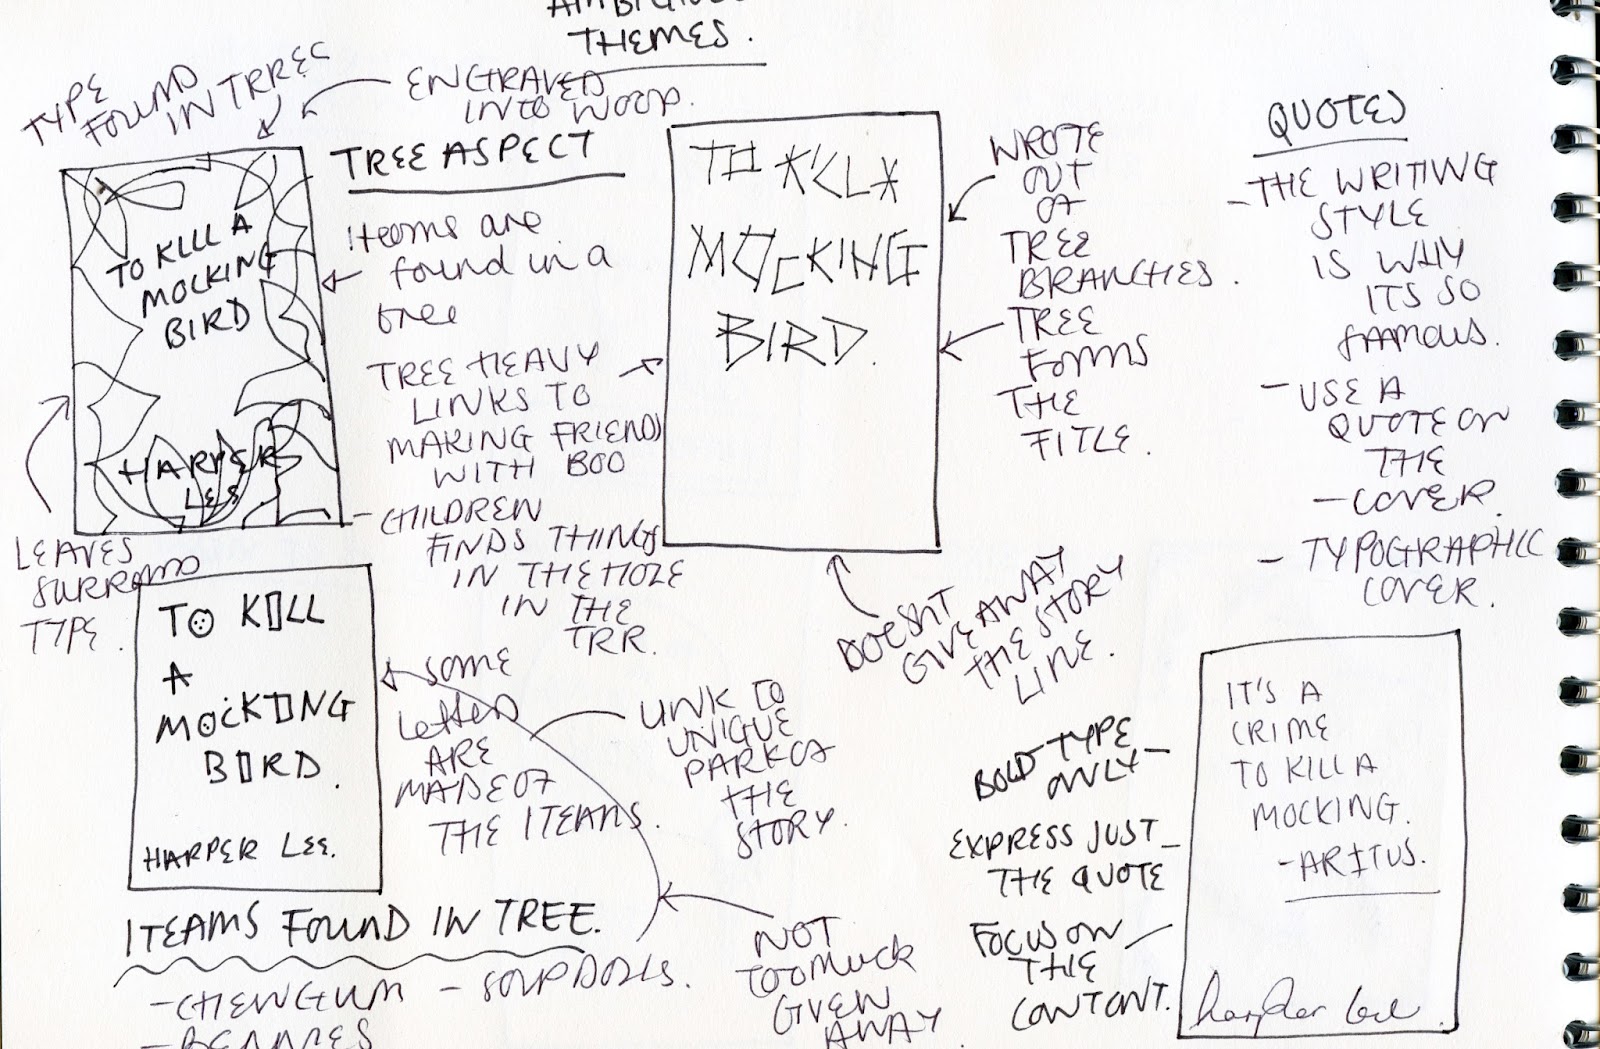 THEMES.
TYPE
FOUND
IN TRREC
ENGRAVED
INTO WOOD.
TREE ASPECT
Iteams are
found in a
tree
TREE HEAVY
LINKS TO
MAKING FRIENDS
WITH BOO
- CHILDREN
FINDS THINGS
IN THE HOLE
IN THE
TRR.
TO KILL A
MOCKING
BIRD
HARPER
LEE
LEAVES
SURROUND
TYPE.
MOCKING
BIRD.
WROTE
OUT
OF
TREE
BRANCHES.
TREE
FORMS
THE
TITLE.
DOESNT
GIVE AWAY
THE STORY
LINE.
QUOTES
- THE WRITING
STYLE
IS WHY
ITS SO
FAMOUS.
- USE A
QUOTE ON
THE
- COVER.
- TYPOGRAPHIC
COVER.
TO KILL
A
MOCKING
BIRD.
HARPER LEE.
SOME
letters
ARE
MADE OF
THE ITEAMS.
LINK TO
UNIQUE
PARK OF
THE
STORY.
ITEAMS FOUND IN TREE.
- CHEWGUM - SOAP DOLLS.
NOT
TOO MUCK
GIVEN
AWAY.
BOLD TYPE
ONLY -
EXPRESS JUST -
THE QUOTE
FOCUS ON
THE
CONTONT.
IT'S A
CRIME
TO KILL A
MOCKING.
- ARITUS.
harper Lee.